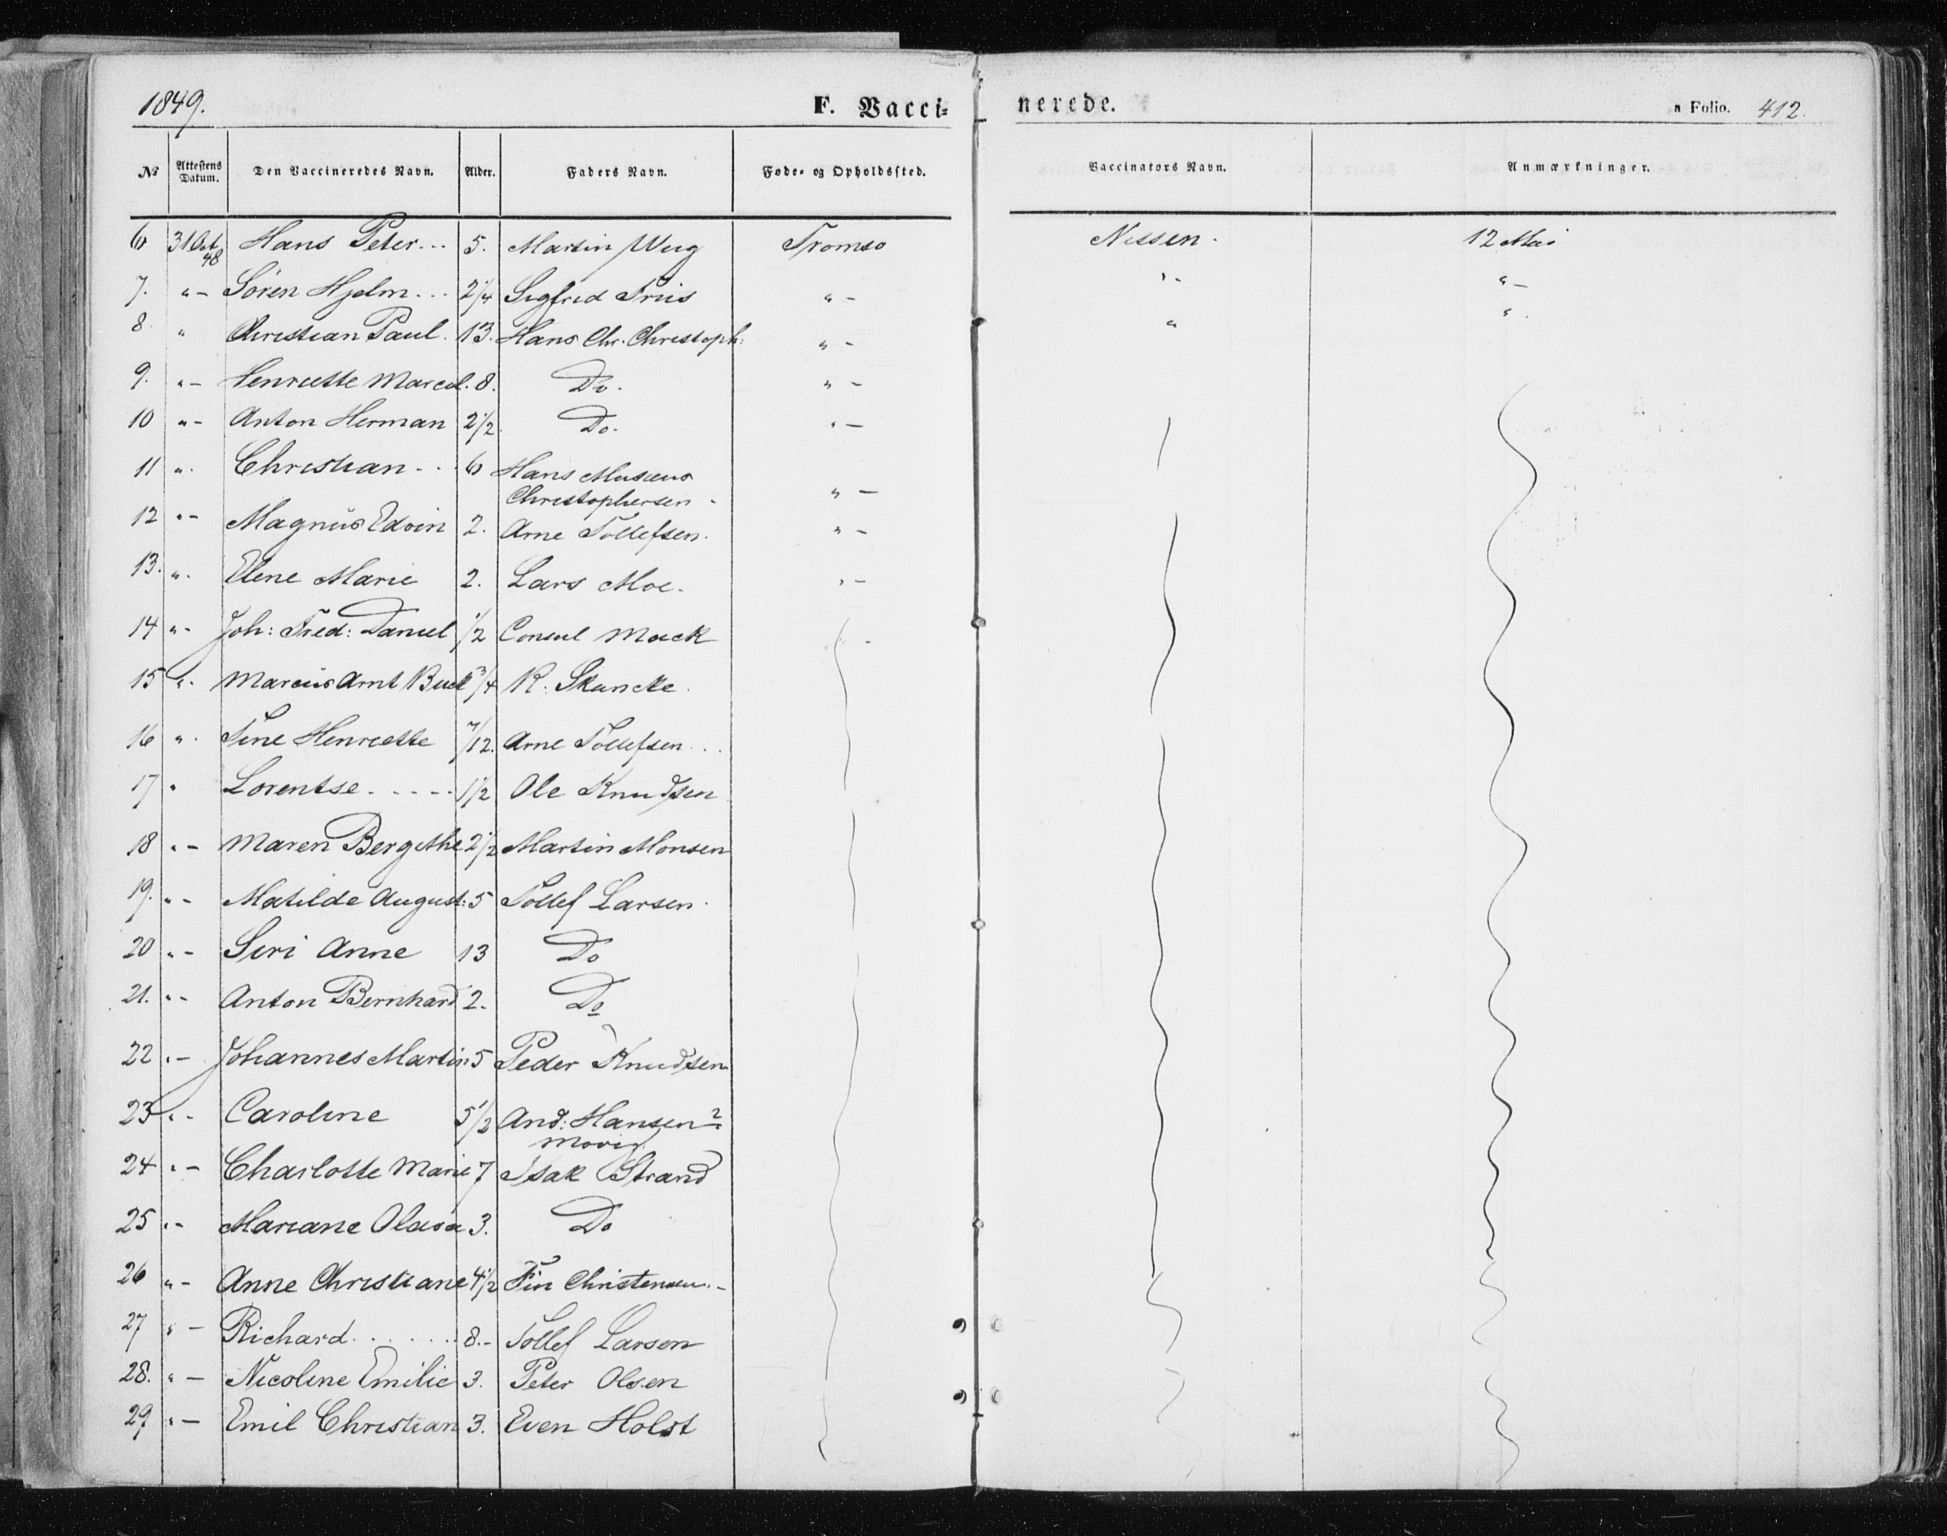 1849. F. Vacci= nerede. a Folio. 412.
No Attestens Datum. Den Vaccineredes Navn. Alder. Faders Navn. Føde- og Opholdssted. Vaccinators Navn. Anmærkninger.
6 31 Oct 48 Hans Peter... 5. Martin Wug Tromsø Nissen. 12 Mai
7. "- Søren Hjelm... 2 1/4 Sigfrid Friis "- "- "-
8 " Christian Paul. 13. Hans Chr. Christoph: "- " "
9. "- Henriette Marcel. 8. Do. "-
10 "- Anton Herman 2 1/2 Do. "-
11 ". Christian... 6 Hans Musæus
Christophersen - "-
12 "- Magnus Edvin 2. Arne Tollefsen. "-
13. ". Elene Marie 2. Lars Moe. "-
14 "- Joh: Fred: Daniel 1/2 Consul Mack "-
15 ". Marcus Arnt Buck 3/4 R. Skancke.
16 ". Tine Henriette 7/12. Arne Tollefsen...
17 " Lorentse..... 1 1/2 Ole Knudsen
18 "- Maren Bergithe 2 1/2 Martin Monsen
19. "- Matilde August: 5 Tollef Larsen.
20 "- Siri Anne 13 Do
21. "- Anton Bernhard 2. Do
22 "- Johannes Martin 5 Peder Knudsen
23 "- Caroline 5 1/2 And: Hansen
24 "- Charlotte Marie 7 Isak Strand
25 "- Mariane Olava 3. Do
26 "- Anne Christiane 4 1/2 Fin Christensen.-
27 "- Richard...... 8.- Tollef Larsen
28. "- Nicoline Emilie 3. Peter Olsen
29 "- Emil Christian 3. Even Holst